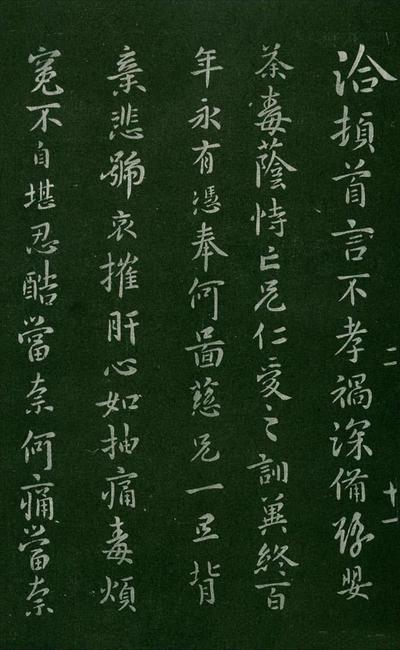 洽頓首言不孝禍深備豫嬰
荼毒蔭恃亡兄仁愛之訓冀終百
年永有憑奉何圖慈兄一旦背
棄悲號哀摧肝心如抽痛毒煩
冤不自堪忍酷當奈何痛當奈
二
十一